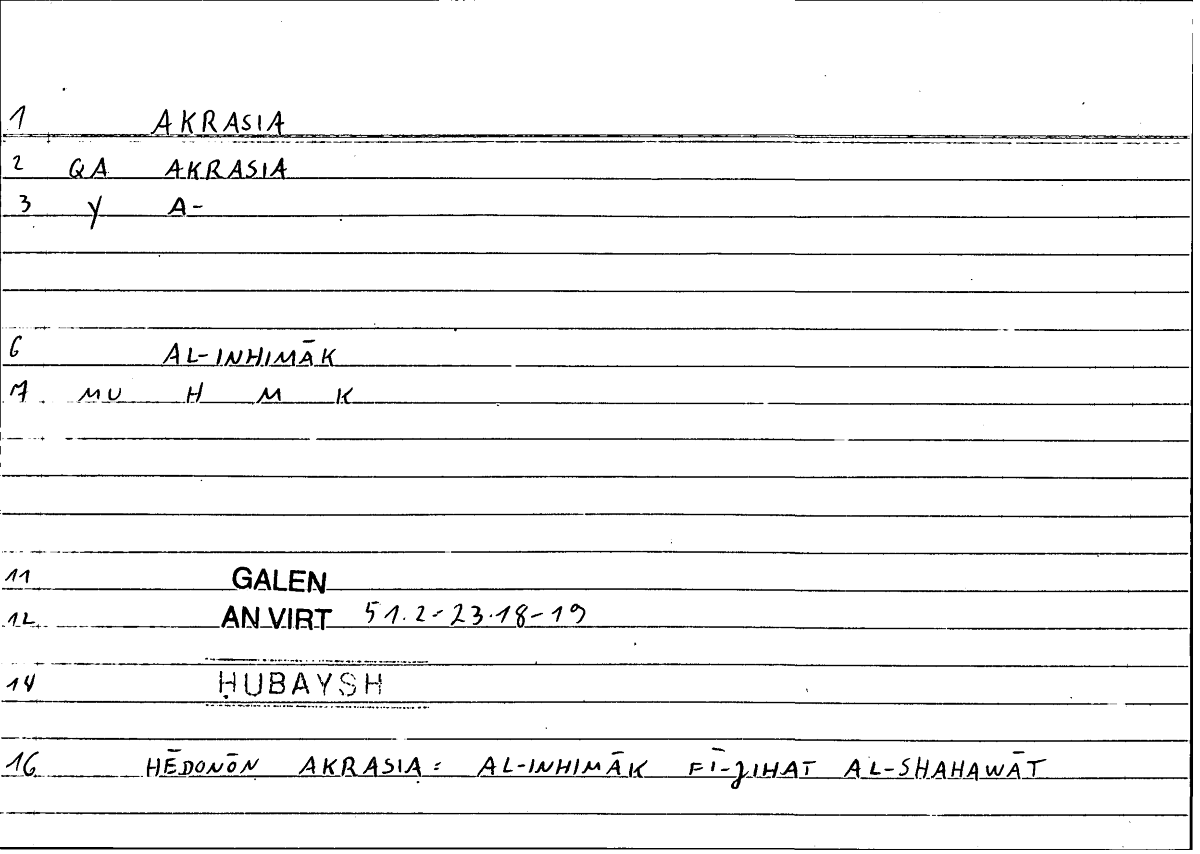 1 AKRASIA
2 QA AKRASIA
3 Y A-
6 AL-INHIMĀK
7 MU H M K
11 GALEN
12 AN VIRT 51.2-23.18-19
14 ḤUBAYSH
16 HĒDONŌN AKRASIA = AL-INHIMĀK FĪ-JIHAT AL-SHAHAWĀT